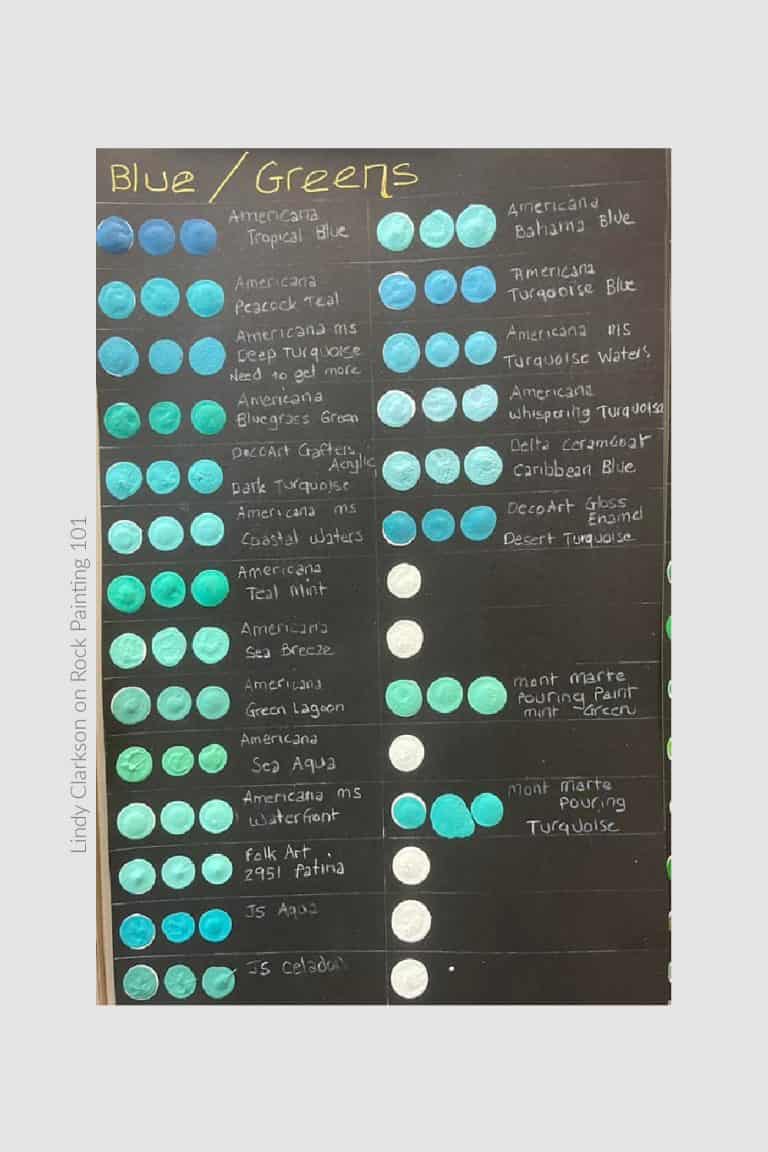 Blue / Greens
Americana
Tropical Blue
Americana
Peacock Teal
Americana ms
Deep Turquoise
Need to get more
Americana
Bluegrass Green
DecoArt Crafters
Acrylic
Dark Turquoise
Americana ms
Coastal Waters
Americana
Teal Mint
Americana
Sea Breeze
Americana
Green Lagoon
Americana
Sea Aqua
Americana ms
Waterfont
Folk Art
2951 Patina
JS Aqua
JS Celadon
Americana
Bahama Blue
Americana
Turquoise Blue
Americana ms
Turquoise Waters
Americana
Whispering Turquoise
Delta Ceramcoat
Caribbean Blue
DecoArt Gloss
Enamel
Desert Turquoise
mont marte
Pouring Paint
mint Green
mont marte
Pouring
Turquoise
Lindy Clarkson on Rock Painting 101